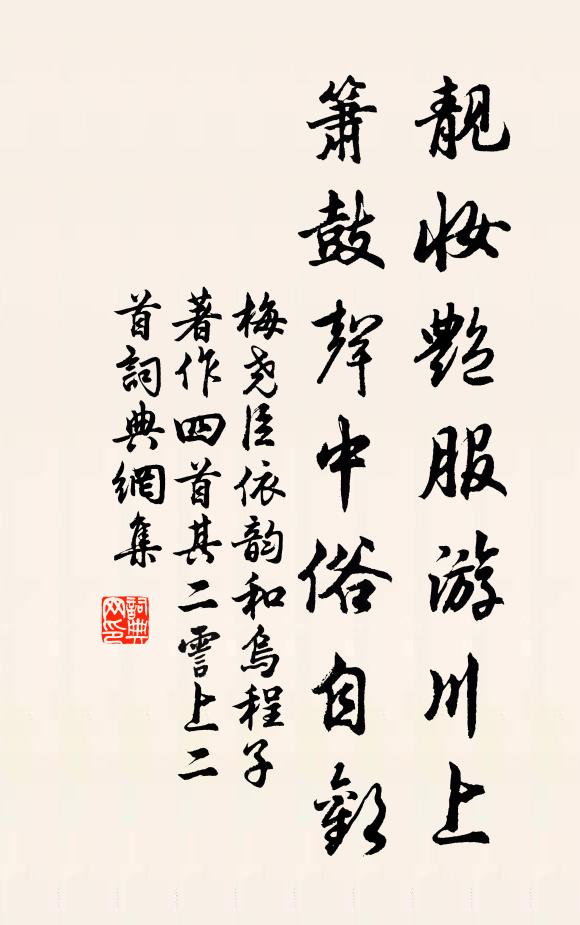 靚妝艷服游川上
簫鼓聲中俗自歡
梅堯臣依韵和烏程子
著作四首其二霅上二
首詞典網集
詞典网印